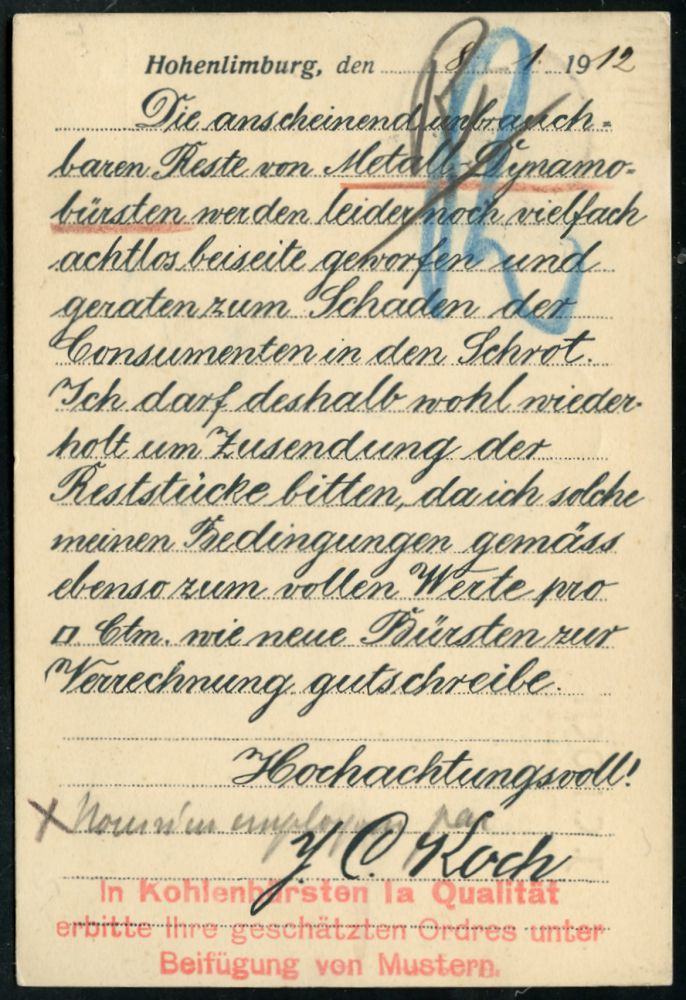 Hohenlimburg, den 8. 1. 1912
Die anscheinend unbrauch-
baren Reste von Metall-Dynamo-
bürsten werden leider noch vielfach
achtlos beiseite geworfen und
geraten zum Schaden der
Consumenten in den Schrot.
Ich darf deshalb wohl wieder-
holt um Zusendung der
Reststücke bitten, da ich solche
meinen Bedingungen gemäss
ebenso zum vollen Werte pro
□ Ctm. wie neue Bürsten zur
Verrechnung gutschreibe.
Hochachtungsvoll!
Nous n'en employons pas
J C. Koch
In Kohlenbürsten Ia Qualität
erbitte Ihre geschätzten Ordres unter
Beifügung von Mustern.